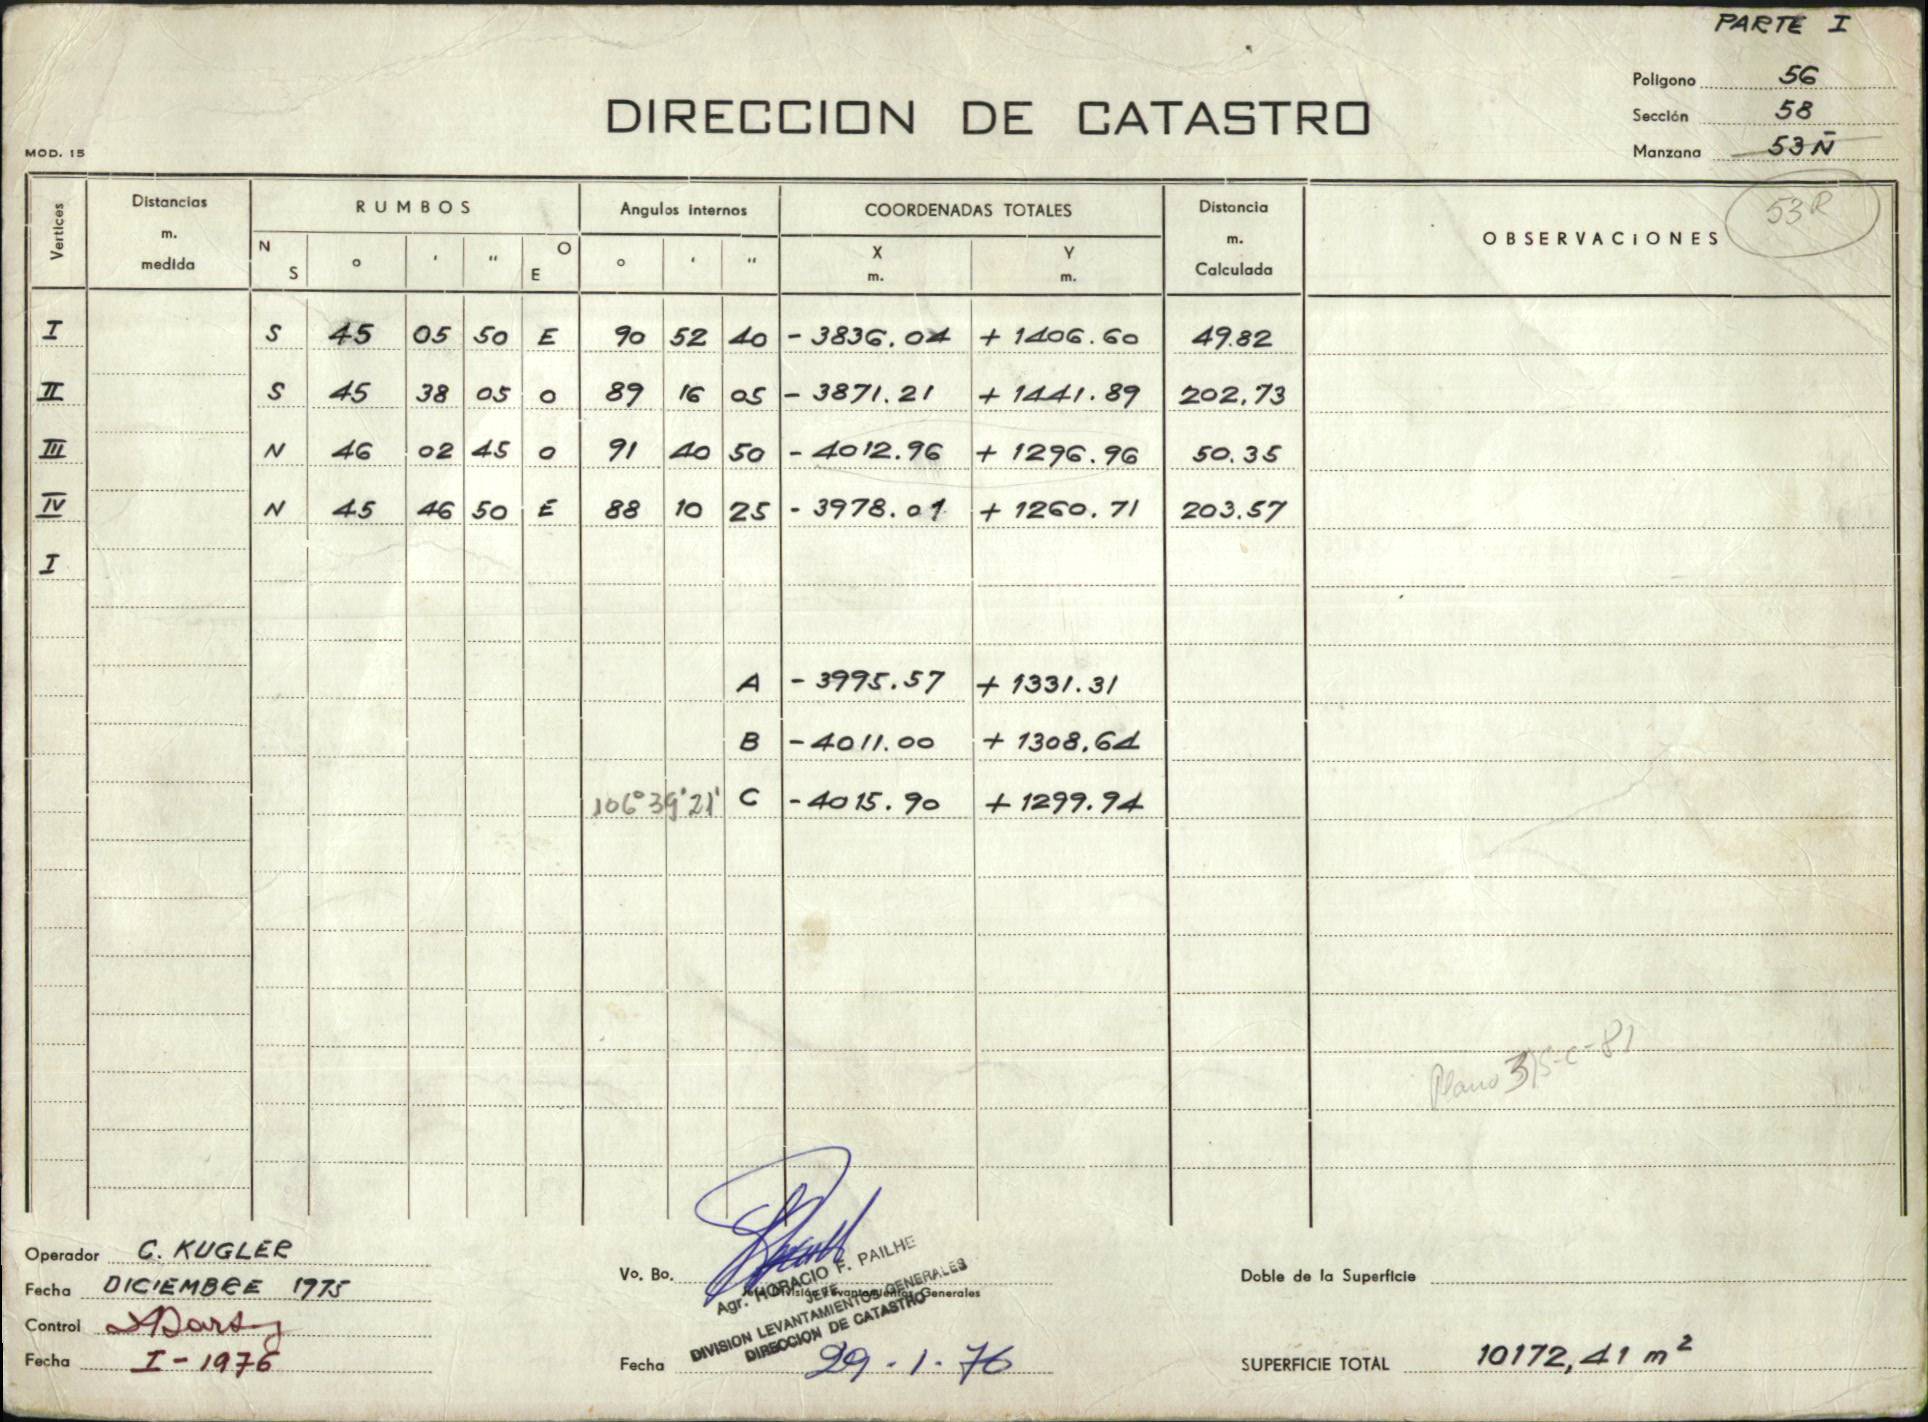 PARTE I
Poligono 56
DIRECCION DE CATASTRO
Sección 58
MOD. 15
Manzana 53Ñ
53R
Vertices Distancias m. medida RUMBOS Angulos internos COORDENADAS TOTALES Distancia m. Calculada OBSERVACIONES
N S ° ' " O E ° ' " X m. Y m.
I S 45 05 50 E 90 52 40 - 3836.04 + 1406.60 49.82
II S 45 38 05 O 89 16 05 - 3871.21 + 1441.89 202.73
III N 46 02 45 O 91 40 50 - 4012.96 + 1296.96 50.35
IV N 45 46 50 E 88 10 25 - 3978.01 + 1260.71 203.57
I
A - 3995.57 + 1331.31
B - 4011.00 + 1308.64
106° 39' 21' C - 4015.90 + 1299.94
Plano 315-C-81
Operador C. KUGLER
Fecha DICIEMBRE 1975
Control
Fecha I - 1976
Vo. Bo.
Jefe División Levantamientos Generales
Agr. HORACIO F. PAILHE
JEFE
DIVISION LEVANTAMIENTOS GENERALES
DIRECCION DE CATASTRO
Fecha 29 . 1 . 76
Doble de la Superficie
SUPERFICIE TOTAL 10172,41 m²